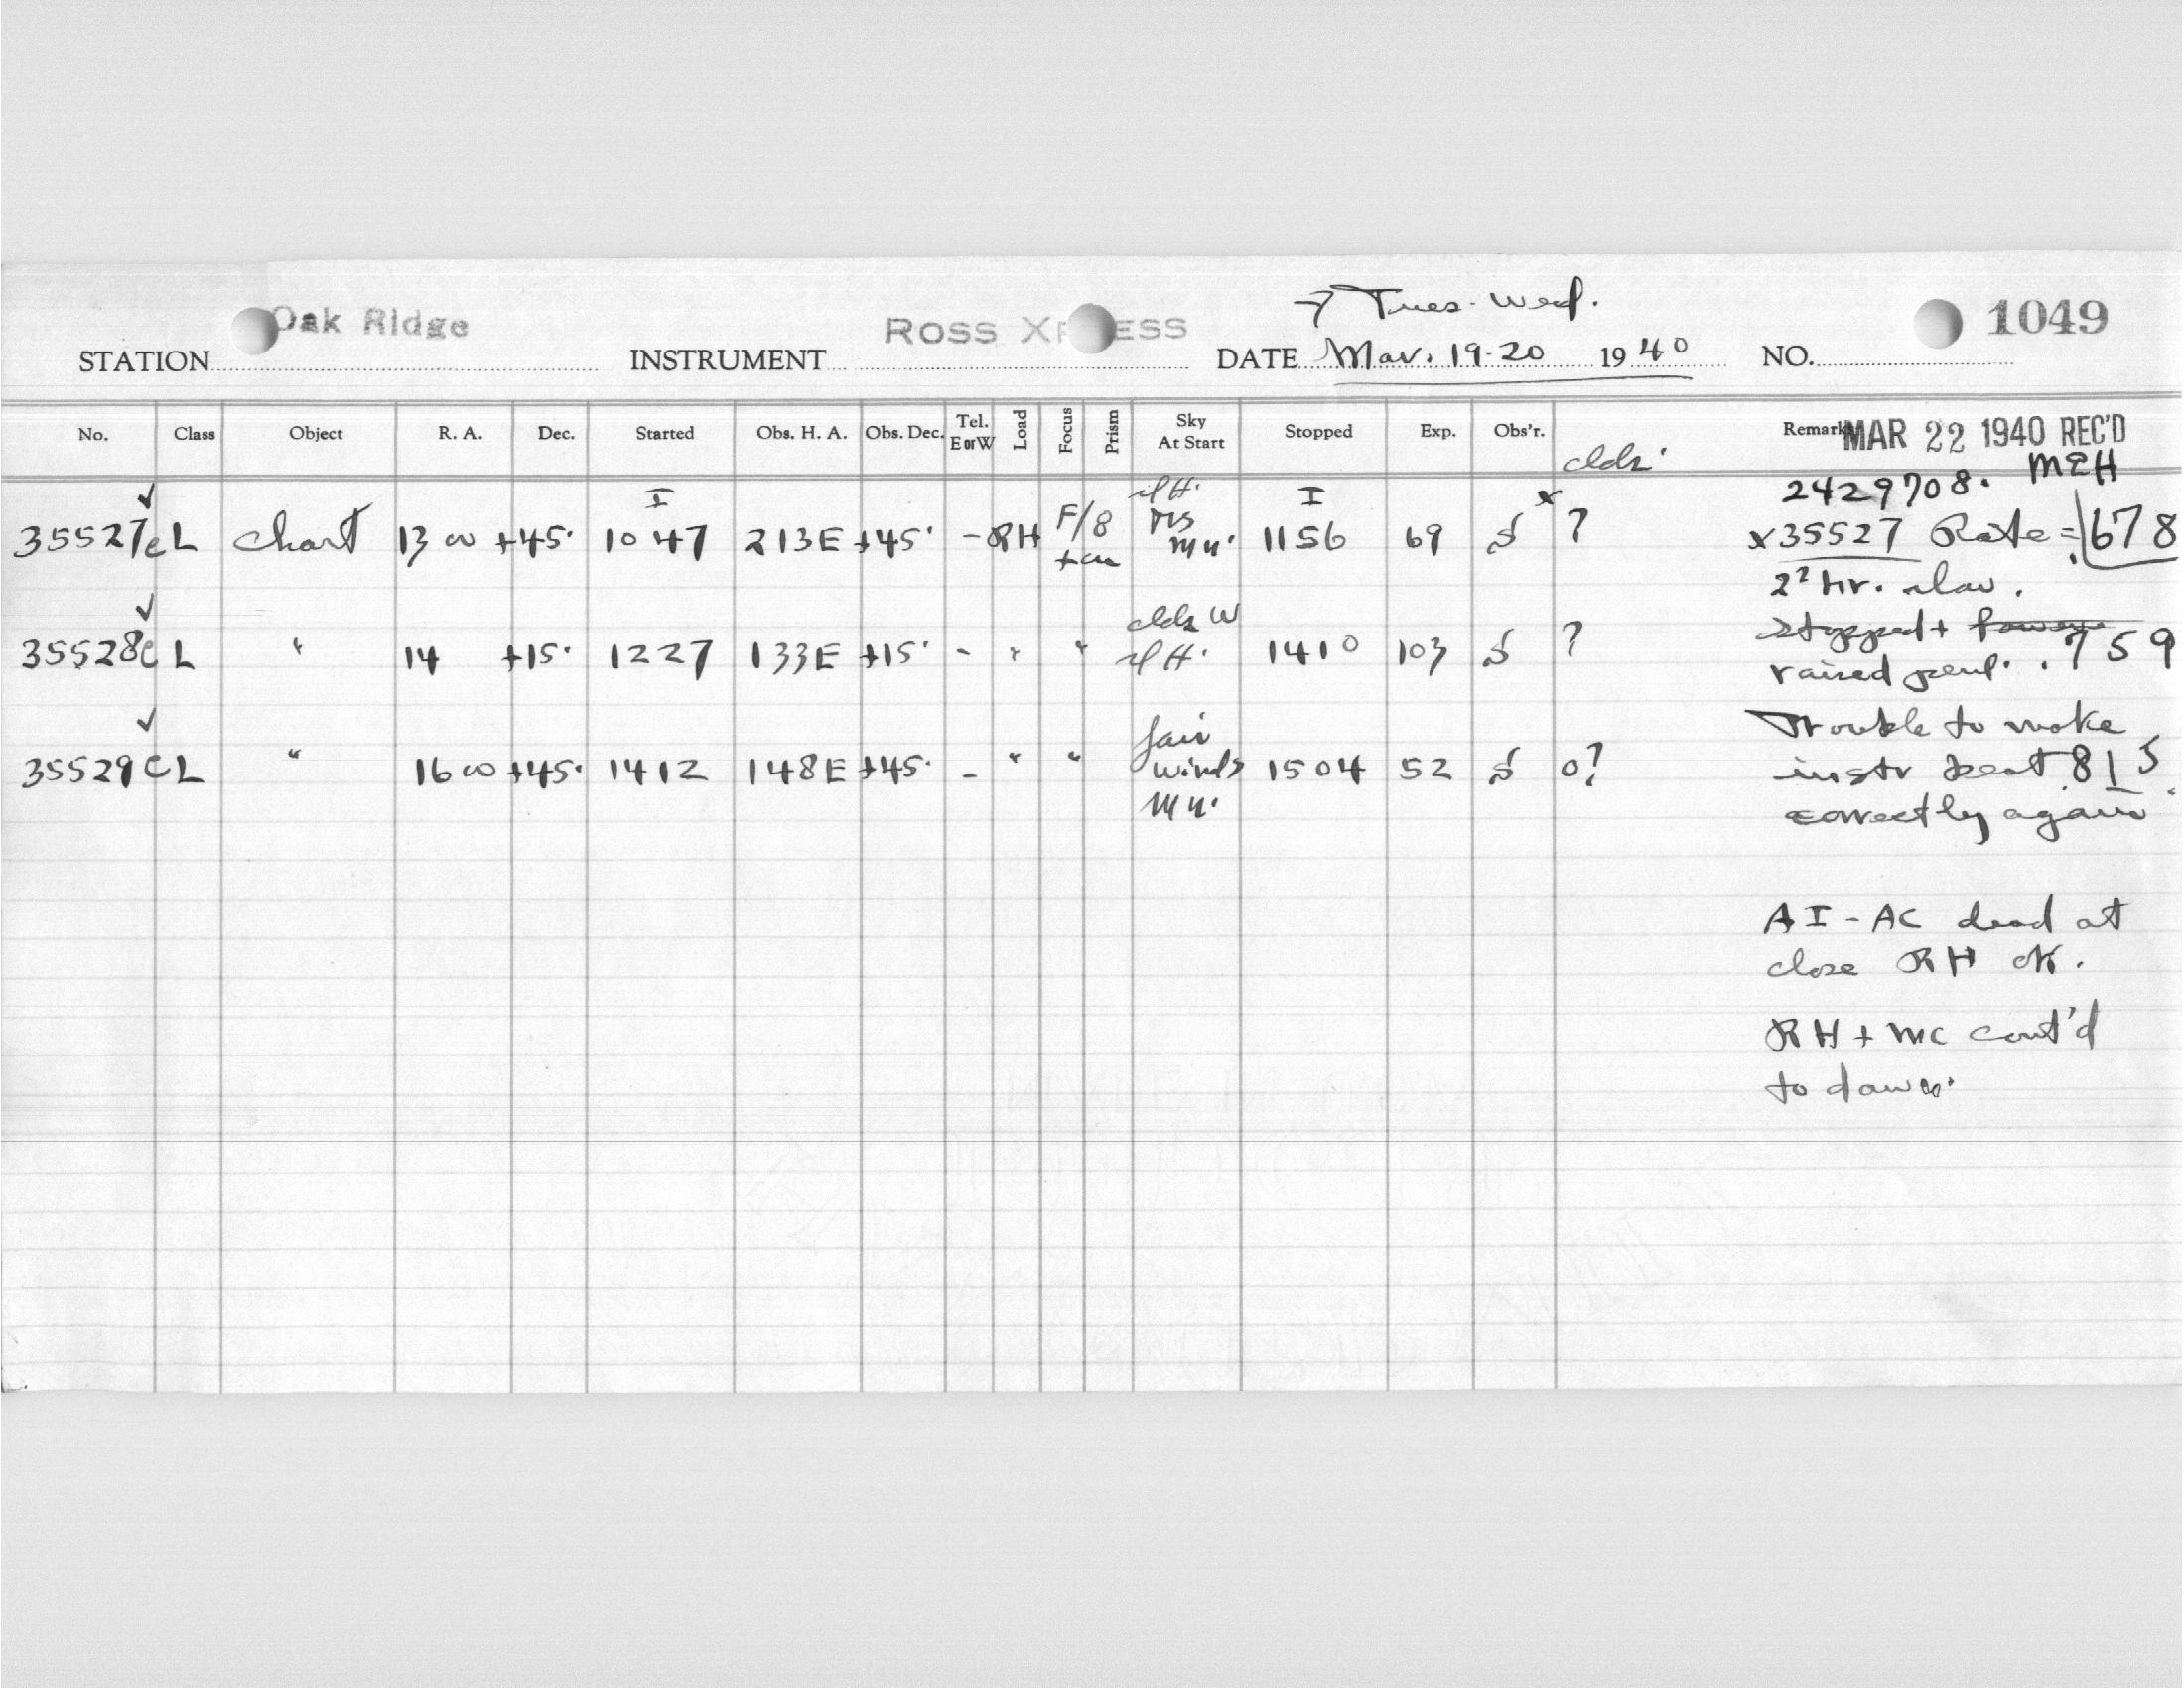 → Tues - Wed.
Oak Ridge ROSS XPRESS 1049
STATION INSTRUMENT DATE Mar. 19-20 1940 NO.
No. Class Object R. A. Dec. Started Obs. H. A. Obs. Dec. Tel. E or W Load Focus Prism Sky At Start Stopped Exp. Obs'r. clds. Remark MAR 22 1940 REC'D
2429708. MEH
35527c L chart 13 00 +45° I 10 47 213E +45° - RH F/8 Mn. I 1156 69 S x ? x35527 Rate = .678
2² hr. slow.
35528c L " 14 +15° 1227 133E +15° - " " clds W 1410 103 S ? stopped + raised pend. .759
35529c L " 16 00 +45° 1412 148E +45° - " " fair winds Mn. 1504 52 S 0? Trouble to make
instr beat .815
correctly again.
AI - AC dead at
close RH OK.
RH + MC cont'd
to dawn.